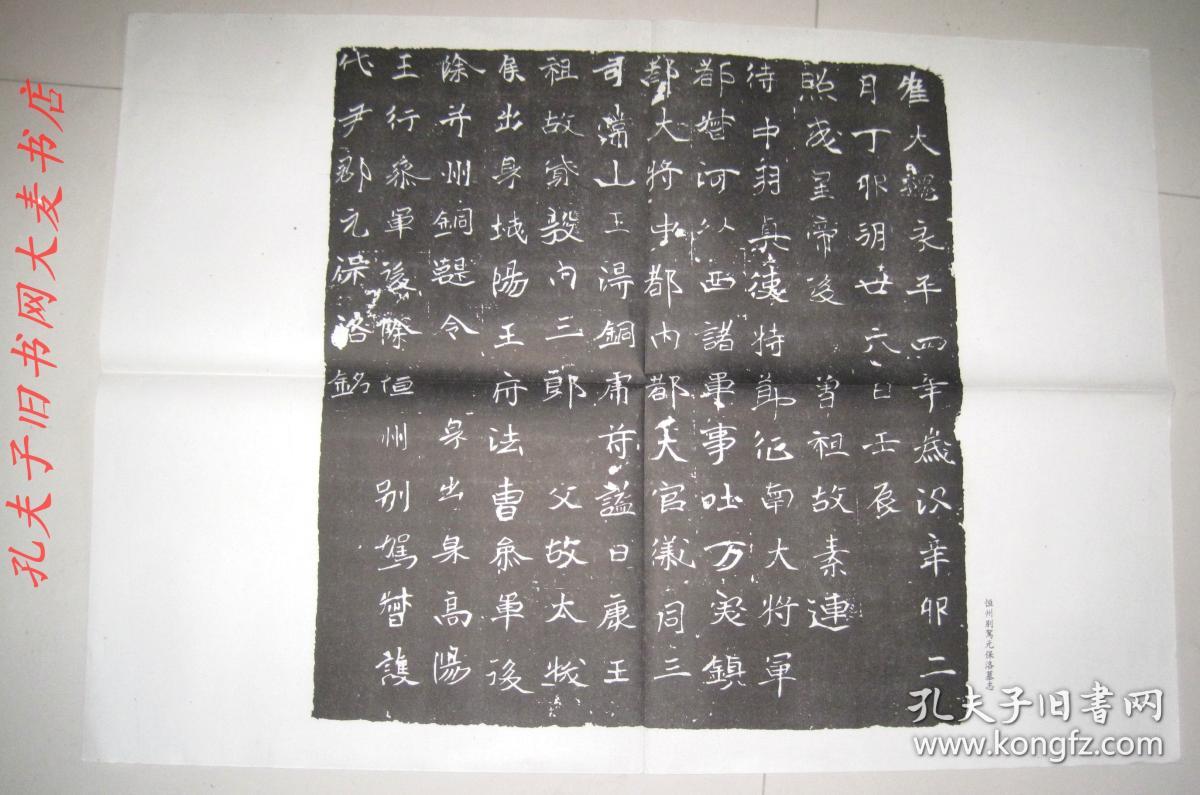 隹大魏永平四年歲次辛卯二
月丁卯朔廿六日壬辰
照成皇帝後 曾祖故素連
侍中羽真使特節征南大將軍
都督河以西諸軍事吐万突鎮
都大將中都內都大官儀同三
司常山王得銅虎符謚曰康王
祖故貸毅內三郎 父故太拔
侯出身城陽王府法曹參軍後
除并州銅鞮令 身出身高陽
王行參軍後除恒州別駕督護
代尹郡元保洛銘
恒州别駕元保洛墓志
孔夫子旧书网大麦书店
孔夫子旧书网
www.kongfz.com